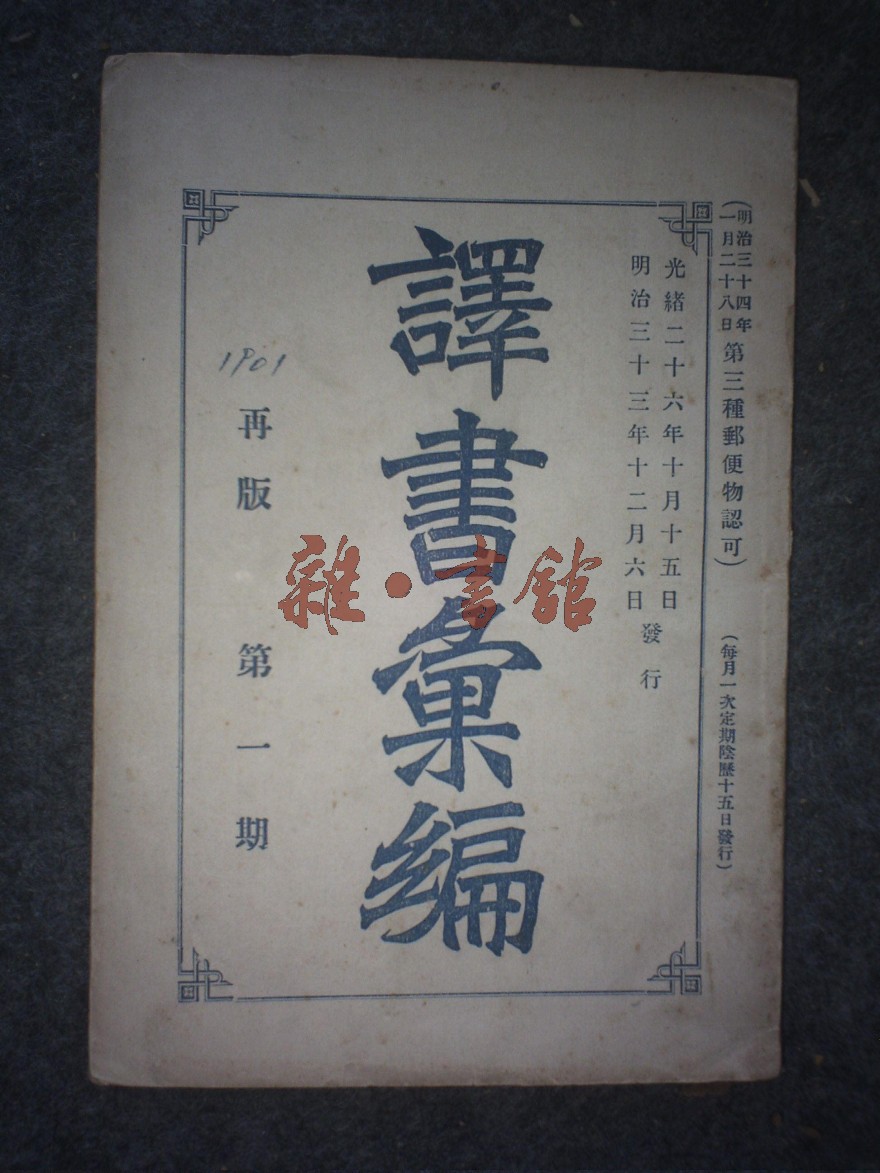 (明治三十四年
一月二十八日
第三種郵便物認可)
(每月一次定期陰曆十五日發行)
光緒二十六年十月十五日
明治三十三年十二月六日
發行
譯書彙編
1901
再版 第一期
雜·書館